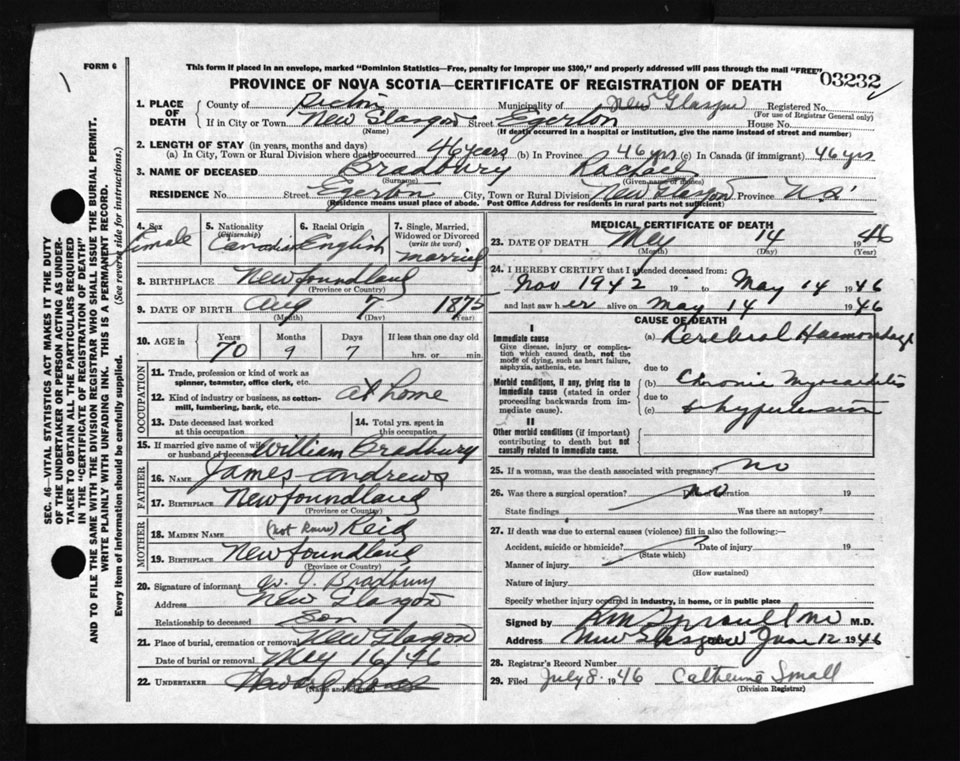 FORM 6
This form if placed in an envelope, marked "Dominion Statistics—Free, penalty for improper use $300," and properly addressed will pass through the mail "FREE"
03232
PROVINCE OF NOVA SCOTIA—CERTIFICATE OF REGISTRATION OF DEATH
SEC. 46—VITAL STATISTICS ACT MAKES IT THE DUTY
OF THE UNDERTAKER OR PERSON ACTING AS UNDER-
TAKER TO OBTAIN ALL THE PARTICULARS REQUIRED
IN THE "CERTIFICATE OF REGISTRATION OF DEATH"
AND TO FILE THE SAME WITH THE DIVISION REGISTRAR WHO SHALL ISSUE THE BURIAL PERMIT.
WRITE PLAINLY WITH UNFADING INK. THIS IS A PERMANENT RECORD.
Every item of information should be carefully supplied. (See reverse side for instructions.)
1. PLACE OF DEATH
County of Pictou Municipality of New Glasgow Registered No.
(For use of Registrar General only)
If in City or Town New Glasgow Street Egerton House No.
(Name) (If death occurred in a hospital or institution, give the name instead of street and number)
2. LENGTH OF STAY (in years, months and days)
(a) In City, Town or Rural Division where death occurred 46 years (b) In Province 46 yrs (c) In Canada (if immigrant) 46 yrs
3. NAME OF DECEASED Bradbury Rachael
(Surname) (Given name or names)
RESIDENCE No. Street Egerton City, Town or Rural Division New Glasgow Province N.S.
(Residence means usual place of abode. Post Office Address for residents in rural parts not sufficient)
4. Sex female
5. Nationality (Citizenship) Canadian
6. Racial Origin English
7. Single, Married, Widowed or Divorced (write the word) married
8. BIRTHPLACE Newfoundland
(Province or Country)
9. DATE OF BIRTH Aug 7 1875
(Month) (Day) (Year)
10. AGE in Years Months Days If less than one day old
70 9 7 hrs. or min.
OCCUPATION
11. Trade, profession or kind of work as
spinner, teamster, office clerk, etc.
12. Kind of industry or business, as cotton-
mill, lumbering, bank, etc. at home
13. Date deceased last worked
at this occupation
14. Total yrs. spent in
this occupation
15. If married give name of wife
or husband of deceased William Bradbury
FATHER
16. NAME James Andrews
17. BIRTHPLACE Newfoundland
(Province or Country)
MOTHER
18. MAIDEN NAME (not known) Reid
19. BIRTHPLACE Newfoundland
(Province or Country)
20. Signature of informant W. J. Bradbury
Address New Glasgow
Relationship to deceased Son
21. Place of burial, cremation or removal New Glasgow
Date of burial or removal May 16/46
22. UNDERTAKER
(Name and address)
MEDICAL CERTIFICATE OF DEATH
23. DATE OF DEATH May 14 1946
(Month) (Day) (Year)
24. I HEREBY CERTIFY that I attended deceased from:
Nov 1942 19 to May 14 1946
and last saw her alive on May 14 1946
CAUSE OF DEATH
I
Immediate cause
Give disease, injury or complica-
tion which caused death, not the
mode of dying, such as heart failure,
asphyxia, asthenia, etc.
(a) Cerebral Haemorrhage
due to
Morbid conditions, if any, giving rise to
immediate cause (stated in order
proceeding backwards from im-
mediate cause).
(b) Chronic Myocarditis
due to
(c) & hypertension
II
Other morbid conditions (if important)
contributing to death but not
causally related to immediate cause.
25. If a woman, was the death associated with pregnancy? no
26. Was there a surgical operation? no Date of operation 19
State findings Was there an autopsy?
27. If death was due to external causes (violence) fill in also the following:
Accident, suicide or homicide? Date of injury 19
(State which)
Manner of injury
(How sustained)
Nature of injury
Specify whether injury occurred in industry, in home, or in public place
Signed by M.D.
Address New Glasgow June 12 1946
28. Registrar's Record Number
29. Filed July 8 1946 Catherine Small
(Division Registrar)